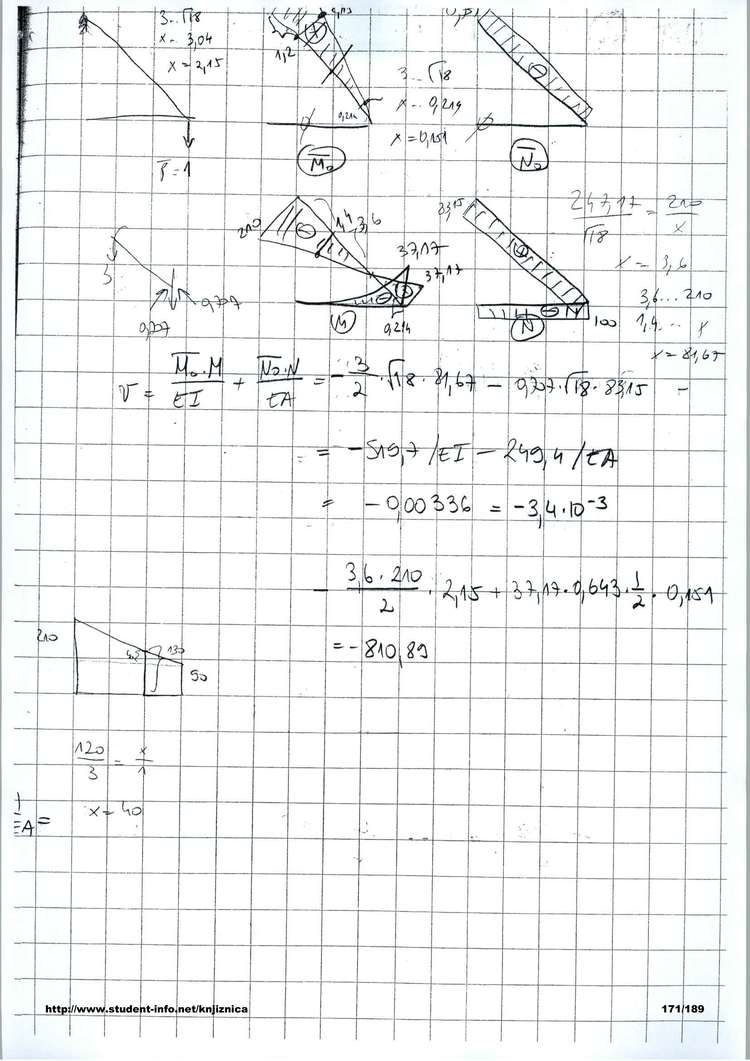 3...√18
x...3,04
x = 2,15
P̄=1
1,2
0,214
M̄₀
3...√18
x...0,214
x = 0,151
N̄₀
3
0,707
0,707
210
1,4
3,6
37,17
37,17
0,214
M
83,15
100
N
247,17/√18 = 210/x
x = 3,6
3,6...210
1,4...x
x = 81,67
v = M̄₀·M/EI + N̄₀·N/EA = -3/2·√18·81,67 - 0,707·√18·83,15 -
= -519,7/EI - 249,4/EA
= -0,00336 = -3,4·10⁻³
- 3,6·210/2 · 2,15 + 37,17·0,643·1/2 · 0,151
= -810,89
210
130
90
120/3 = x/1
x = 40
EA =
http://www.student-info.net/knjiznica
171/189